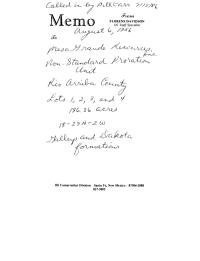 Called in by Bill Carr 7/22/86
Memo
From
FLORENE DAVIDSON
OC Staff Specialist
August 6, 1986
Mesa Grande Resources, Inc
Non-Standard Proration
Unit
Rio Arriba County
Lots 1, 2, 3, and 4
186.26 acres
18-25N-2W
Gallup and Dakota
formations
Oil Conservation Division Santa Fe, New Mexico 87504-2088